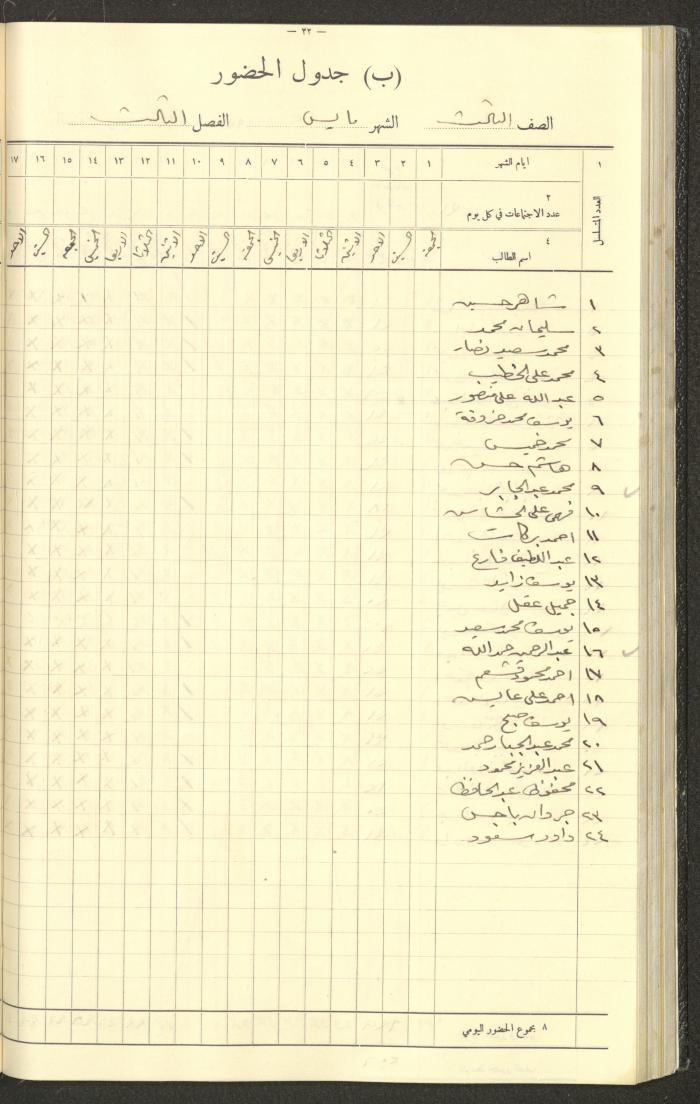 — ٢٢ —
(ب) جدول الحضور
الصف الثالث الشهر مايس الفصل الثالث
١ ايام الشهر ١ ٢ ٣ ٤ ٥ ٦ ٧ ٨ ٩ ١٠ ١١ ١٢ ١٣ ١٤ ١٥ ١٦ ١٧
العدد المتسلسل
٢
عدد الاجتماعات في كل يوم
٤
اسم الطالب
الجمعه السبت الاحد الاثنين الثلاثا الاربعا الخميس الجمعه السبت الاحد الاثنين الثلاثا الاربعا الخميس الجمعه السبت الاحد
١ شاهر حسين
٢ سليمان محمد
٣ محمد سعيد نصار
٤ محمد علي الخطيب
٥ عبد الله علي منصور
٦ يوسف محمد
٧ محمد خميس
٨ هاشم حسن
٩ محمد عبد الجابر
١٠ فهمي علي
١١ احمد بركات
١٢ عبد اللطيف فارع
١٣ يوسف زايد
١٤ جميل عقل
١٥ يوسف محمد سعيد
١٦ عبد الرحمن حمد الله
١٧ احمد محمود
١٨ احمد علي عايس
١٩ يوسف
٢٠ محمد عبد الجبار حمد
٢١ عبد العزيز محمود
٢٢ محفوظ عبد الحافظ
٢٣ باجس
٢٤ داود سعود
٨ مجموع الحضور اليومي